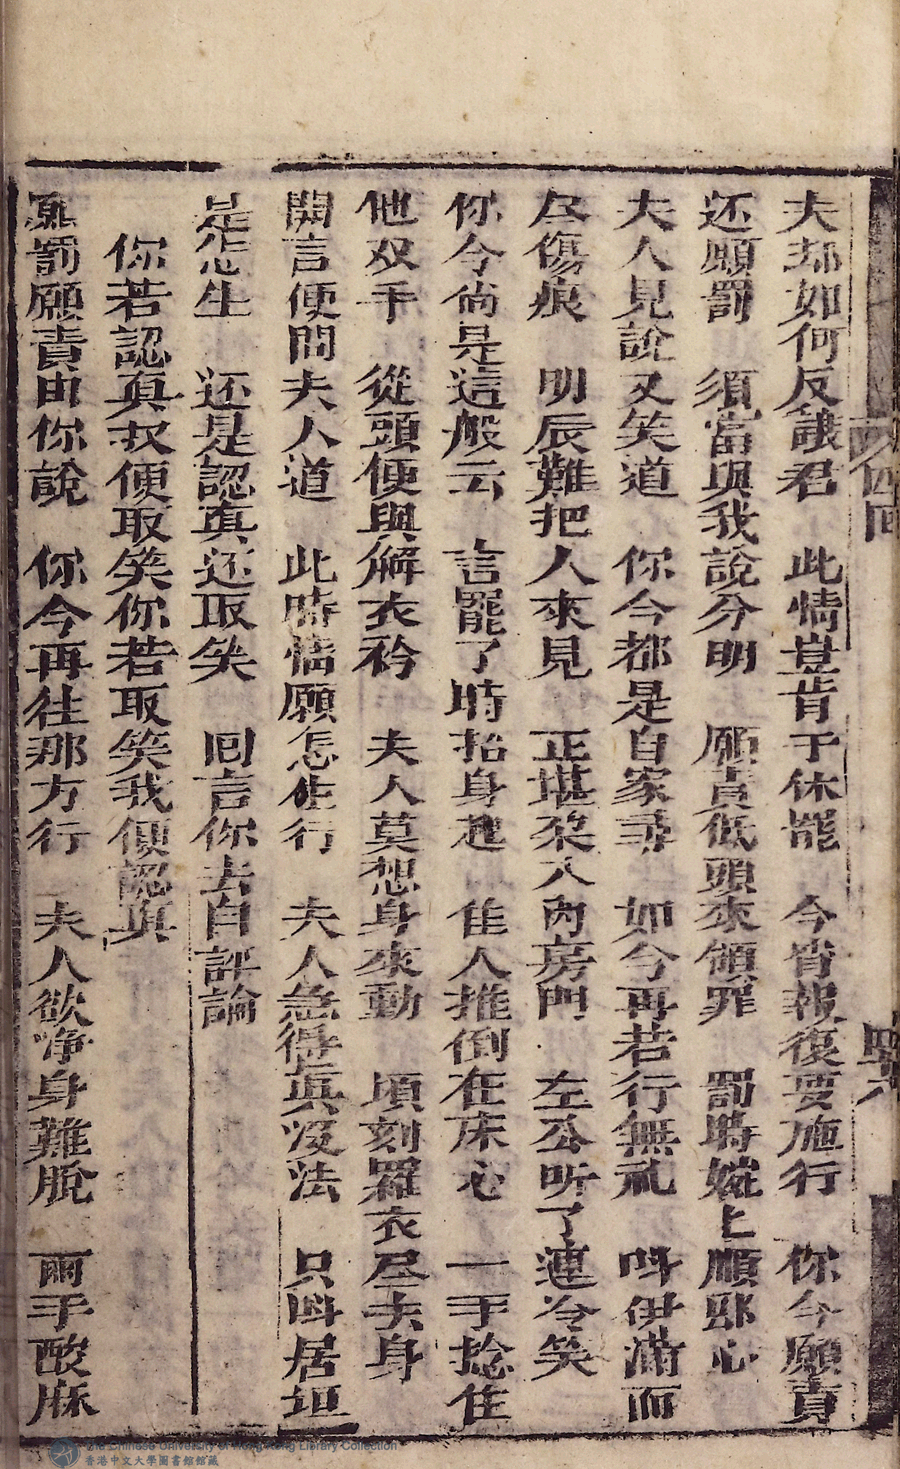 四回
夫却如何反譏君　此情豈肯干休罷　今宵報復要施行　你今願責
还願罰　須當與我說分明　願責低頭來領罪　罰時婉上順郎心
夫人見說又笑道　你今都是自家尋　如今再若行無礼　呌伊滿面
尽傷痕　明辰難把人來見　正堪癸入內房門　左公听了連冷笑
你今尙是這般云　言罷了時抬身起　佳人推倒在床心　一手捻住
他双手　從頭便與解衣衿　夫人莫想身來動　頃刻羅衣尽去身
開言便問夫人道　此時情願怎生行　夫人急得真沒法　只呌居垣
是怎生　还是認真还取笑　囘言你去自評論
你若認真奴便取笑你若取笑我便認真
愿罰願責由你說　你今再往那方行　夫人欲净身難脫　兩手酸麻
The Chinese University of Hong Kong Library Collection
香港中文大學圖書館館藏